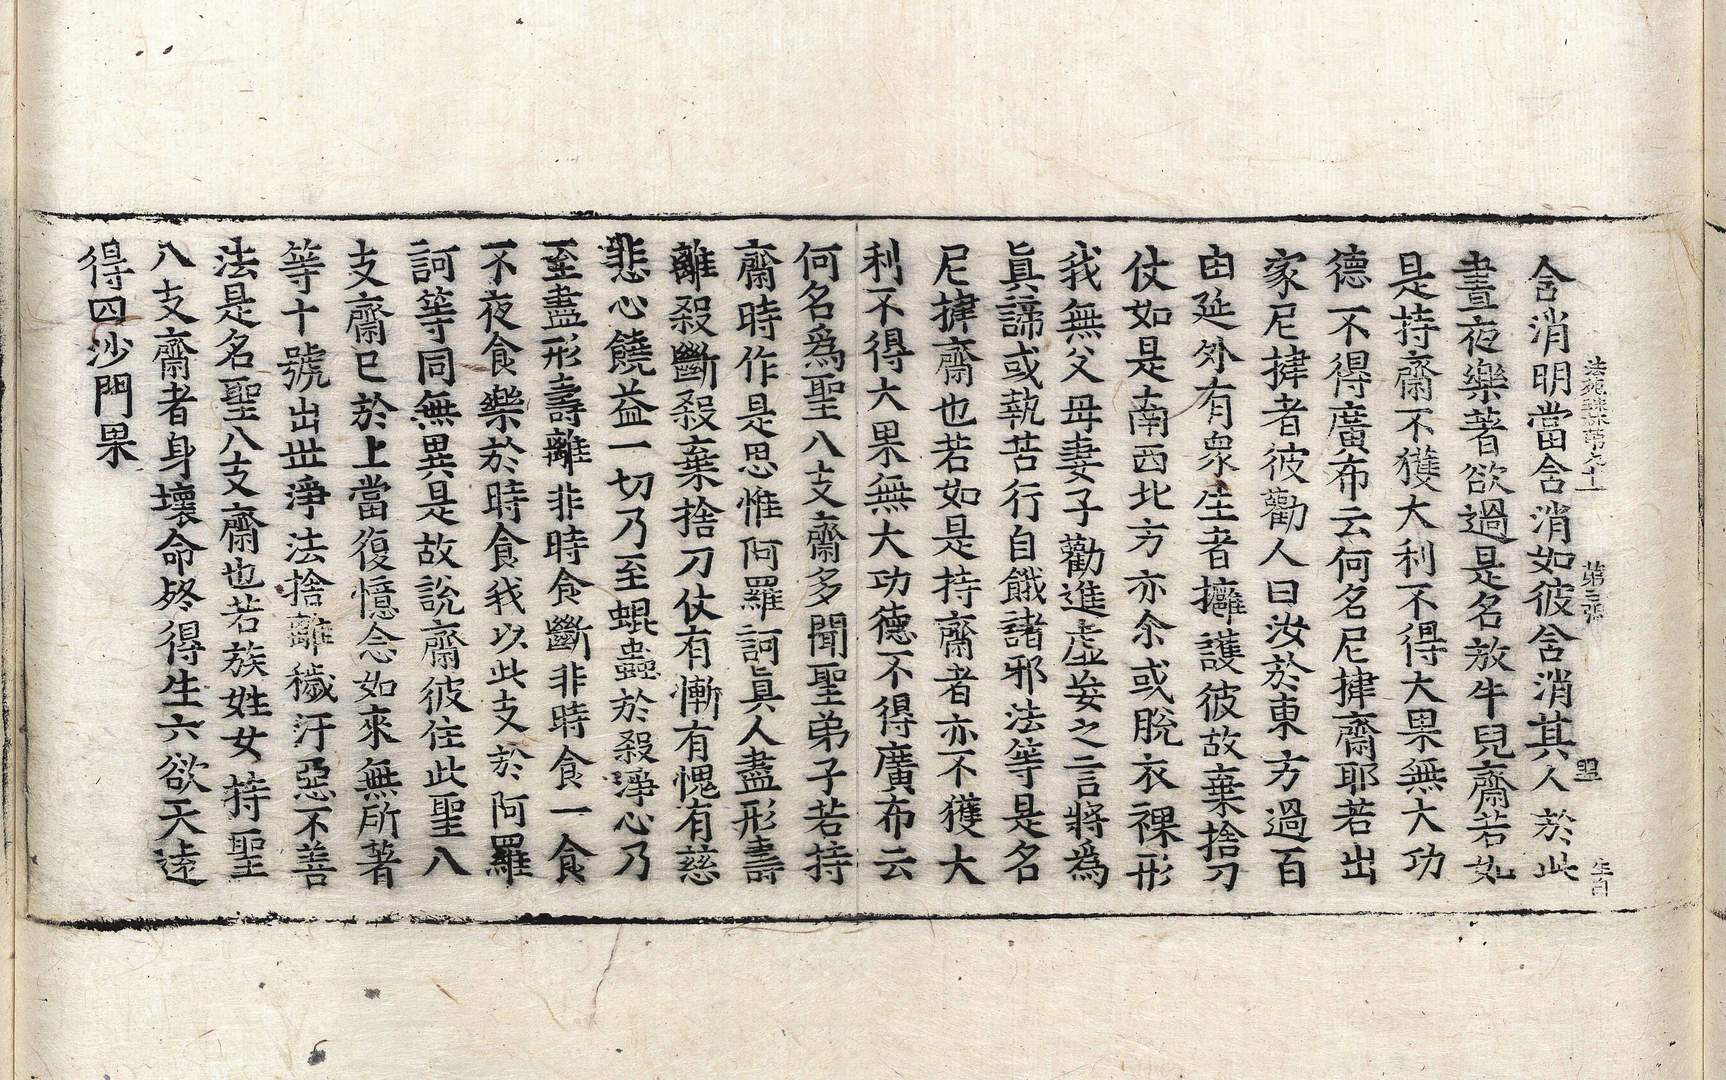 法苑珠林第九十一 第三張 聖 生白
含消明當含消如彼含消其人於此
晝夜樂著欲過是名放牛兒齋若如
是持齋不獲大利不得大果無大功
德不得廣布云何名尼揵齋耶若出
家尼揵者彼勸人曰汝於東方過百
由延外有衆生者擁護彼故棄捨刀
仗如是南西北方亦尒或脫衣裸形
我無父母妻子勸進虛妄之言將爲
眞諦或執苦行自餓諸邪法等是名
尼揵齋也若如是持齋者亦不獲大
利不得大果無大功德不得廣布云
何名爲聖八支齋多聞聖弟子若持
齋時作是思惟阿羅訶眞人盡形壽
離殺斷殺棄捨刀仗有慚有愧有慈
悲心饒益一切乃至蜫蟲於殺淨心乃
至盡形壽離非時食斷非時食一食
不夜食樂於時食我以此支於阿羅
訶等同無異是故說齋彼住此聖八
支齋已於上當復憶念如來無所著
等十號出世淨法捨離穢汙惡不善
法是名聖八支齋也若族姓女持聖
八支齋者身壞命終得生六欲天遠
得四沙門果